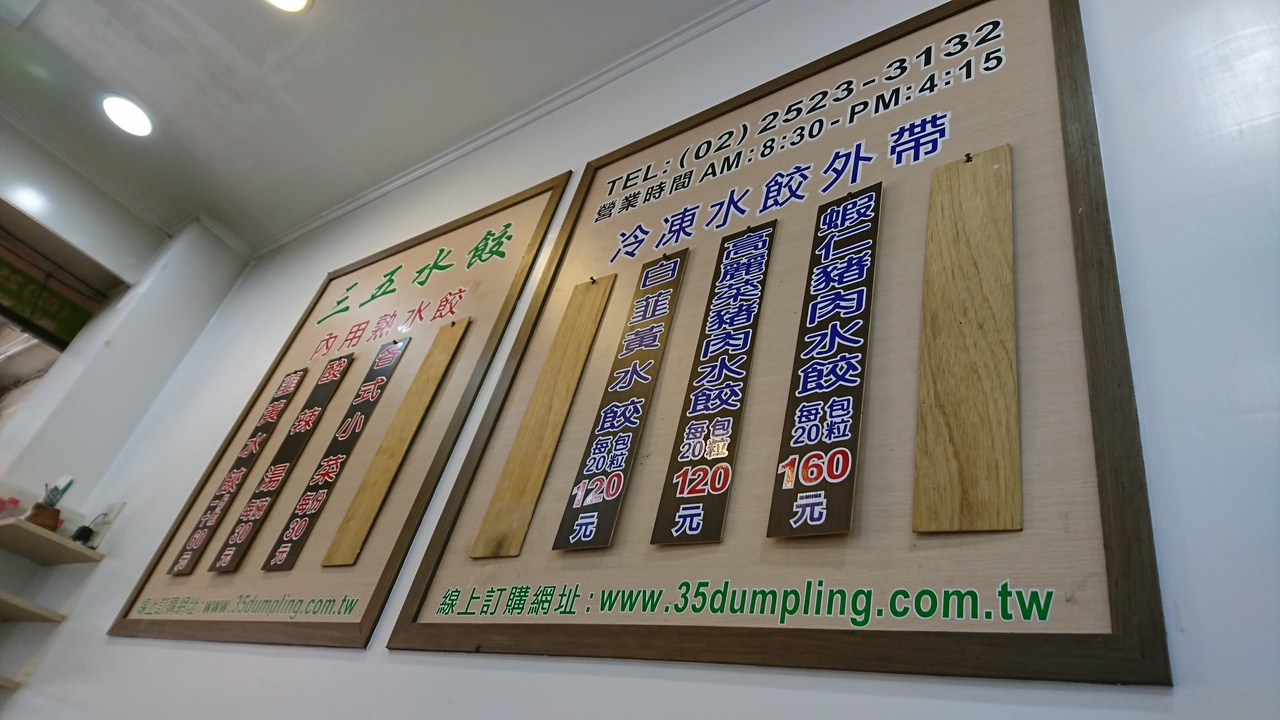 三五水餃
內用熟水餃
韮黃水餃十個60元
酸辣湯每份30元
各式小菜每份30元
線上訂購網址:www.35dumpling.com.tw
TEL:(02)2523-3132
營業時間AM:8:30-PM:4:15
冷凍水餃外帶
白韮黃水餃每包20粒120元
高麗菜豬肉水餃每包20粒120元
蝦仁豬肉水餃每包20粒160元
線上訂購網址:www.35dumpling.com.tw